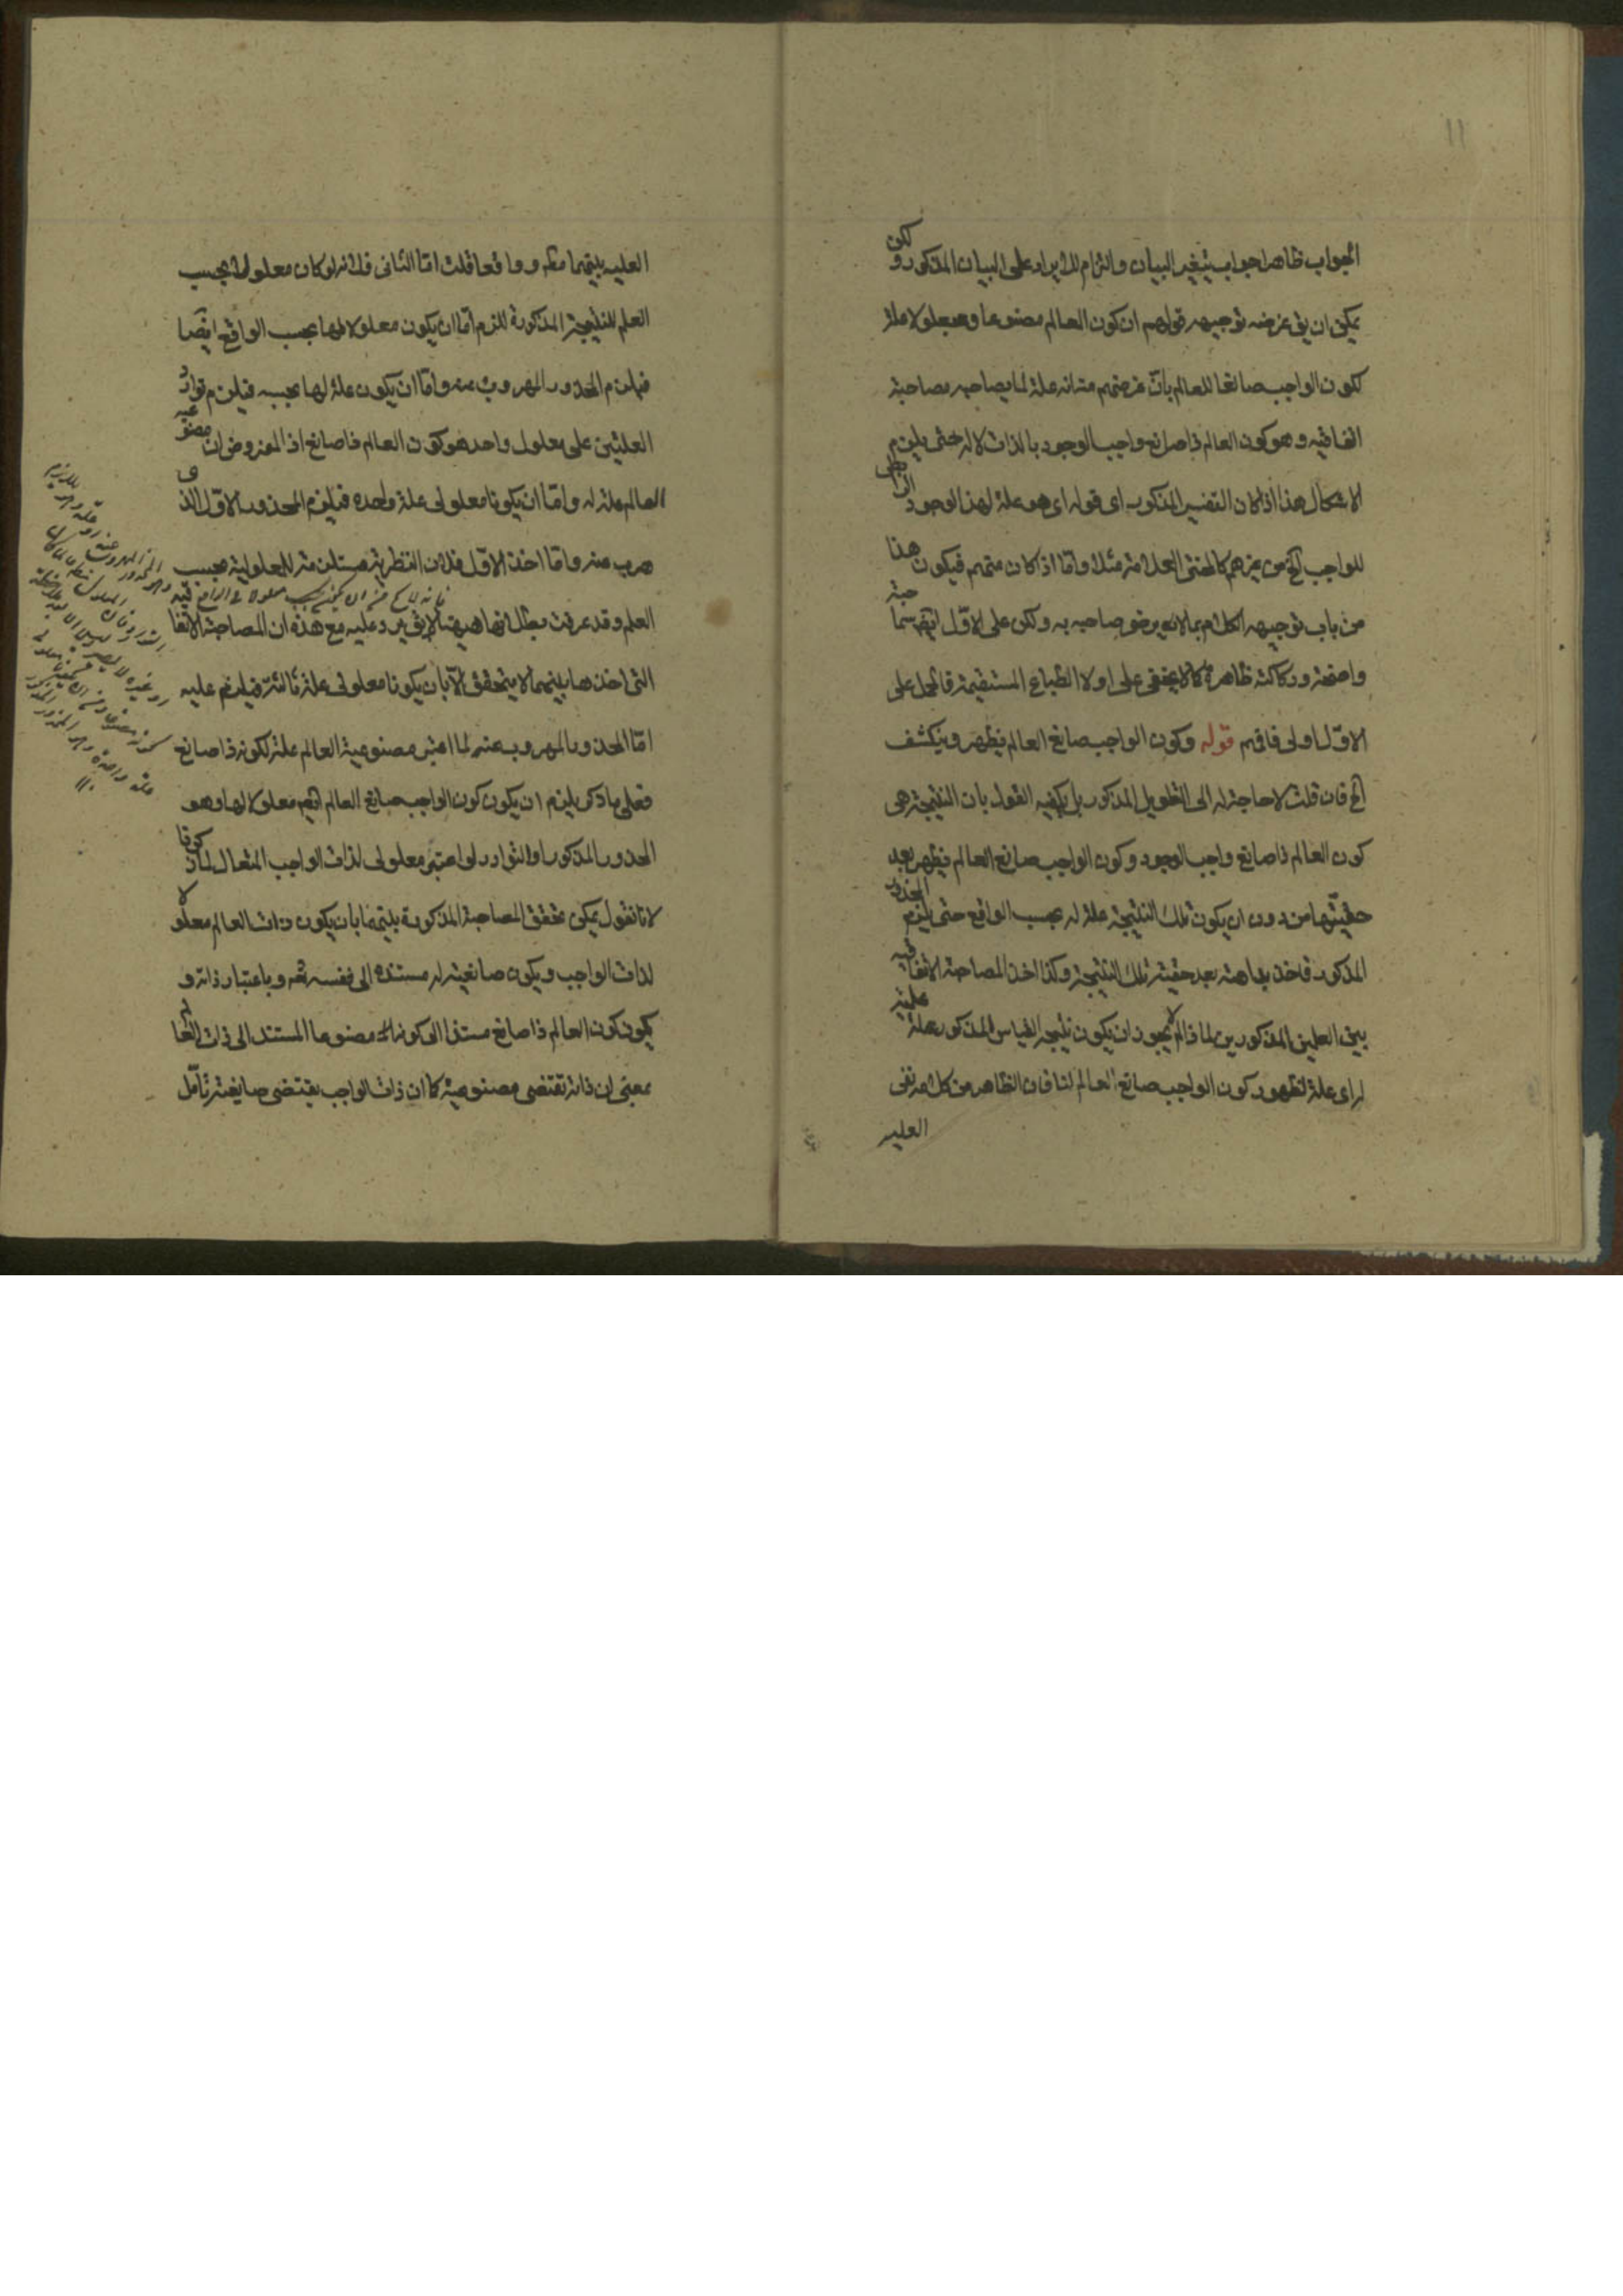 الجواب ظاهرا جواب بتغيير البيان والتزام للايراد على البيان المذكور ولكن
يمكن ان يق غرضه توجيه قولهم ان كون العالم مصنوعا ومجعولا علة
لكون الواجب صانعا للعالم بان غرضهم منه انه علة لما يصاحبه مصاحبة
اتفاقيه وهو كون العالم ذا صانع واجب الوجود بالذات لا له حتى يلزم
الاشكال هذا اذا كان التفسير المذكور اى قوله اى هو علة لهذا الوجود الرابطى
للواجب الخ من غيرهم كالمحشى العلامة مثلا واما اذا كان منهم فيكون هذا
من باب توجيه الكلام بما لا يرضى صاحبه به ولكن على الاول ايضا سماجة
واضحة وركاكة ظاهرة كما لا يخفى على اولا الطباع المستقيمة فالحمل على
الاول اولى فافهم قوله وكون الواجب صانع العالم يظهر وينكشف
الخ فان قلت لا حاجة له الى التطويل المذكور بل يكفيه القول بان النتيجة هى
كون العالم ذا صانع واجب الوجود وكون الواجب صانع العالم يظهر بعد
حقيتها من دون ان يكون تلك النتيجة علة له بحسب الواقع حتى يلزم المحذور
المذكور فاخذ بداهته بعد حقية تلك النتيجة وكذا اخذ المصاحبة الاتفاقيه
بين العلمين المذكورين لماذا لم لا يجوز ان يكون نتيجة القياس المذكور علة علمية
له اى علة لظهور كون الواجب صانع العالم لنا فان الظاهر من كلامه نفى
العليه
العليه بينهما مط ووافعا قلت اما الثانى فلانه لو كان معلولا بحسب
العلم للنتيجة المذكورة للزم اما ان يكون معلولا لها بحسب الواقع ايضا
فيلزم المحذور المهروب عنه واما ان يكون علة لها بحسبه فيلزم توارد
العلتين على معلول واحد هو كون العالم ذا صانع اذ المفروض ان مصنوعيه
العالم علة له واما ان يكونا معلولى علة واحده فيلزم المحذور الاول الذى
هرب عنه واما اخذ الاول فلان النظرية مستلزمة للمعلولية بحسب
العلم وقد عرفت بطلانها هيهنا لا يق يرد عليه مع هذه ان المصاحبة الاتفاقيه
التى اخذها بينهما لا يتحقق الا بان يكونا معلولى علة ثالثة فيلزم عليه
اما المحذور المهروب عنه لما اعتبر مصنوعية العالم علة لكونه ذا صانع
فعلى ما ذكر يلزم ان يكون كون الواجب صانع العالم ايضا معلولا لها وهو
المحذور المذكور او التوارد لو اعتبر معلولى لذات الواجب المتعال لما ذكر فا
لانا نقول يمكن تحقق المصاحبة المذكورة بينهما بان يكون ذات العالم معلولا
لذات الواجب ويكون صانعيته له مستنده الى نفسه تعه وباعتبار ذاته و
يكون كون العالم ذا صانع مستندا الى كونه مصنوعا المستند الى ذات العالم
بمعنى ان ذاته تقتضى مصنوعية كما ان ذات الواجب يقتضى صانعيته تامل